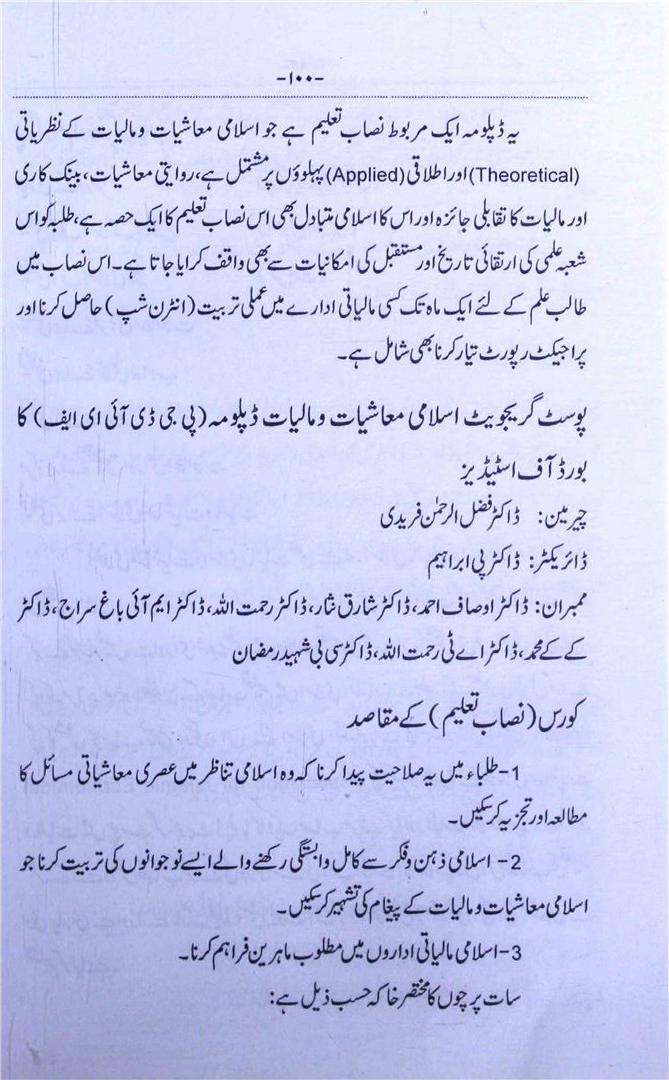 -۱۰۰-
یہ ڈپلومہ ایک مربوط نصاب تعلیم ہے جو اسلامی معاشیات و مالیات کے نظریاتی
(Theoretical) اور اطلاقی (Applied) پہلوؤں پر مشتمل ہے، روایتی معاشیات، بینک کاری
اور مالیات کا تقابلی جائزہ اور اس کا اسلامی متبادل بھی اس نصاب تعلیم کا ایک حصہ ہے، طلبہ کو اس
شعبہ علمی کی ارتقائی تاریخ اور مستقبل کی امکانیات سے بھی واقف کرایا جاتا ہے۔ اس نصاب میں
طالب علم کے لئے ایک ماہ تک کسی مالیاتی ادارے میں عملی تربیت (انٹرن شپ) حاصل کرنا اور
پراجیکٹ رپورٹ تیار کرنا بھی شامل ہے۔
پوسٹ گریجویٹ اسلامی معاشیات و مالیات ڈپلومہ (پی جی ڈی آئی ای ایف) کا
بورڈ آف اسٹیڈیز
چیرمین: ڈاکٹر فضل الرحمٰن فریدی
ڈائریکٹر: ڈاکٹر پی ابراہیم
ممبران: ڈاکٹر اوصاف احمد، ڈاکٹر شارق نثار، ڈاکٹر رحمت اللہ، ڈاکٹر ایم آئی باغ سراج، ڈاکٹر
کے کے محمد، ڈاکٹر اے ٹی رحمت اللہ، ڈاکٹر سی بی شہید رمضان
کورس (نصاب تعلیم) کے مقاصد
1- طلباء میں یہ صلاحیت پیدا کرنا کہ وہ اسلامی تناظر میں عصری معاشیاتی مسائل کا
مطالعہ اور تجزیہ کر سکیں۔
2- اسلامی ذہن و فکر سے کامل وابستگی رکھنے والے ایسے نوجوانوں کی تربیت کرنا جو
اسلامی معاشیات و مالیات کے پیغام کی تشہیر کر سکیں۔
3- اسلامی مالیاتی اداروں میں مطلوب ماہرین فراہم کرنا۔
سات پرچوں کا مختصر خاکہ حسب ذیل ہے: